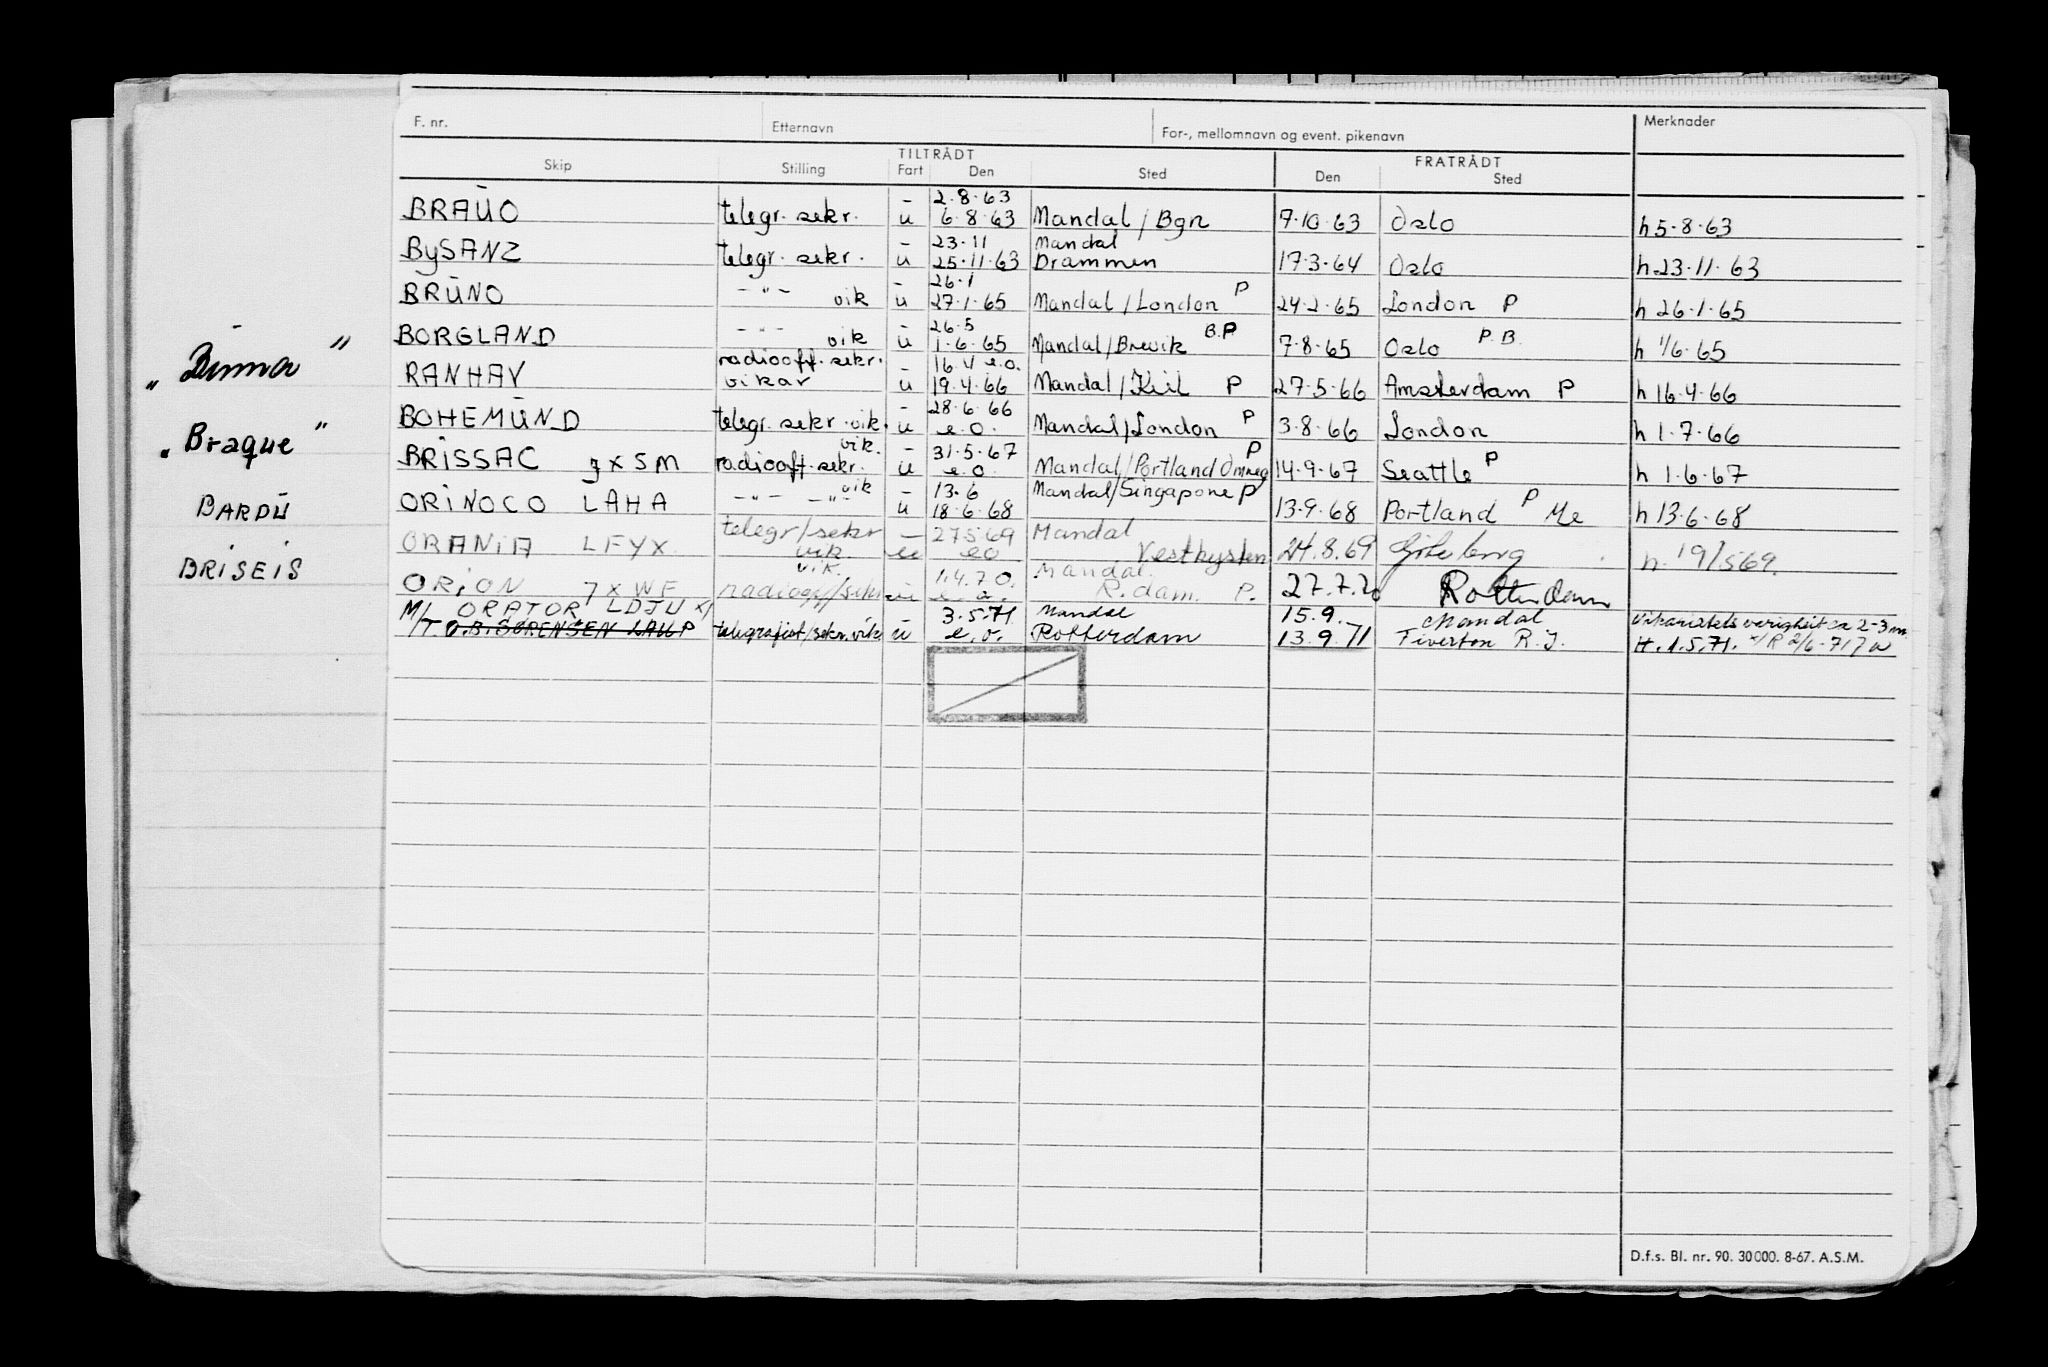 F. nr. Etternavn For-, mellomnavn og event. pikenavn Merknader
TILTRÅDT FRATRÅDT
Skip Stilling Fart Den Sted Den Sted
- 2.8.63
BRAUO telegr. sekr. u 6.8.63 Mandal / Bgn 7.10.63 Oslo h 5.8.63
- 23.11 Mandal
BySANZ telegr. sekr. u 25.11.63 Drammen 17.3.64 Oslo h.23.11.63
- 26.1
BRUNO - " - vik u 27.1.65 Mandal / London P 24.2.65 London P h 26.1.65
- 26.5
BORGLAND - " - vik u 1.6.65 Mandal / Brevik B.P 7.8.65 Oslo P.B. h 1/6.65
radiooff. sekr. - 16.4 e.o.
RANHAV vikar u 19.4.66 Mandal / Kiel P 27.5.66 Amsterdam P h 16.4.66
- 28.6.66
BOHEMUND telegr. sekr. vik. u e.o. Mandal / London P 3.8.66 London h 1.7.66
vik. - 31.5.67
BRISSAC JXSM radiooff. sekr. u e.o. Mandal / Portland P 14.9.67 Seattle P h 1.6.67
vik - 13.6
ORINOCO LAHA - " - - " - u 18.6.68 Mandal / Singapore P 13.9.68 Portland P Me h 13.6.68
telegr/sekr - 27569 Mandal
ORANIA LFYX vik u eo Vestkysten 24.8.69 Göteborg h. 19/569.
vik. 1.4.70. Mandal.
ORION JXWE radioff/sekr u e.o. R.dam. P. 27.7.70 Rotterdam
M/ ORATOR LDJU x) 3.5.71 Mandal 15.9. Mandal Vikariatets varighet ca 2-3 m
/T O.B. SØRENSEN telegrafist/sekr. vik u e.o. Rotterdam 13.9.71 Tiverton R.J. H.1.5.71. x) R 2/6-71
„ Binna "
„ Braque "
BARDU
BRISEIS
D.f.s. Bl. nr. 90. 30000. 8-67. A.S.M.